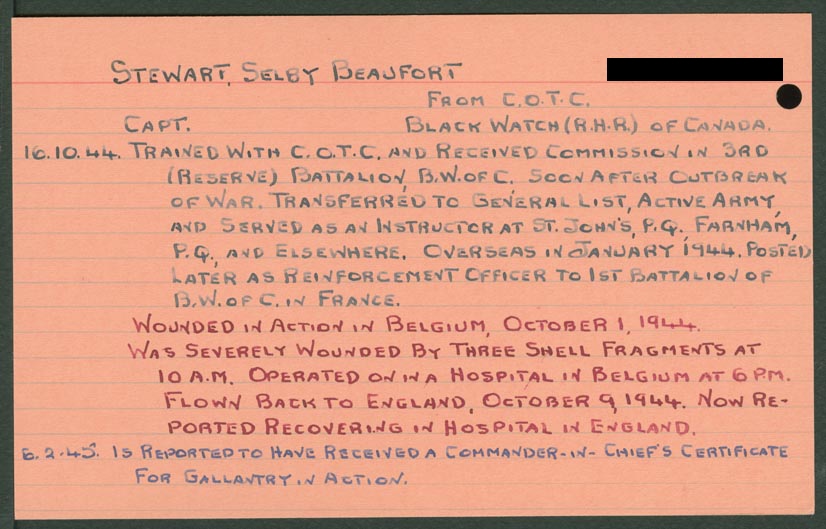 STEWART, SELBY BEAUFORT
FROM C.O.T.C.
CAPT. BLACK WATCH (R.H.R.) OF CANADA.
16.10.44. TRAINED WITH C.O.T.C. AND RECEIVED COMMISSION IN 3RD
(RESERVE) BATTALION, B.W. OF C. SOON AFTER OUTBREAK
OF WAR. TRANSFERRED TO GENERAL LIST, ACTIVE ARMY,
AND SERVED AS AN INSTRUCTOR AT ST. JOHN'S, P.Q., FARNHAM,
P.Q., AND ELSEWHERE. OVERSEAS IN JANUARY, 1944. POSTED
LATER AS REINFORCEMENT OFFICER TO 1ST BATTALION OF
B.W. OF C. IN FRANCE.
WOUNDED IN ACTION IN BELGIUM, OCTOBER 1, 1944.
WAS SEVERELY WOUNDED BY THREE SHELL FRAGMENTS AT
10 A.M. OPERATED ON IN A HOSPITAL IN BELGIUM AT 6 P.M.
FLOWN BACK TO ENGLAND, OCTOBER 9, 1944. NOW RE-
PORTED RECOVERING IN HOSPITAL IN ENGLAND.
6.2.45. IS REPORTED TO HAVE RECEIVED A COMMANDER-IN-CHIEF'S CERTIFICATE
FOR GALLANTRY IN ACTION.